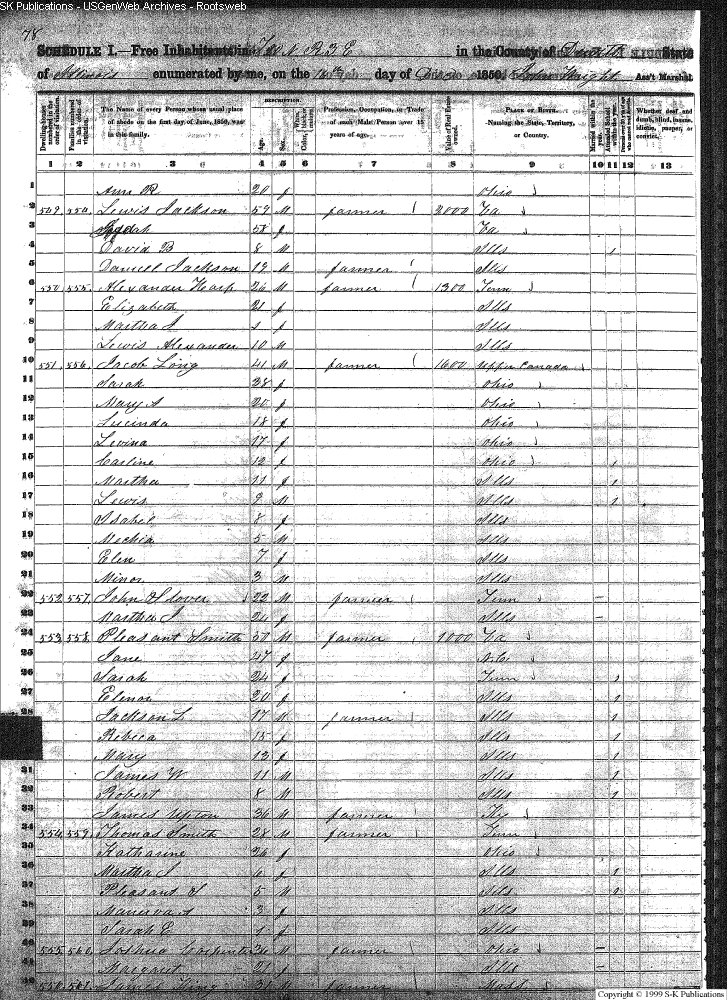 SK Publications - USGenWeb Archives - Rootsweb
78
SCHEDULE I.—Free Inhabitants in T N R 3 E in the County of State
of Illinois enumerated by me, on the day of 1850. Wright Ass't Marshal.
Dwelling-houses numbered in the order of visitation. Families numbered in the order of visitation. The Name of every Person whose usual place of abode on the first day of June, 1850, was in this family. DESCRIPTION. Age. Sex. Color, Profession, Occupation, or Trade of each Male Person over 15 years of age. Value of Real Estate owned. PLACE OF BIRTH. Naming the State, Territory, or Country. Married within the year. Attended School within the year. Whether deaf and dumb, blind, insane, idiotic, pauper, or convict.
1 2 3 4 5 6 7 8 9 10 11 12 13
1 Ann R 20 f Ohio
2 549 554 Lewis Jackson 59 M farmer 2000 Va
3 58 f Va
4 David B 8 M Ills 1
5 Daniel Jackson 19 M farmer Ills
6 550 555 Alexander Harp 26 M farmer 1300 Tenn
7 Elizabeth 21 f Ills
8 Martha J f Ills
9 Lewis Alexander 10 M Ills
10 551 556 Jacob Long 41 M farmer 1600 Upper Canada
11 Sarah 28 f Ohio
12 Mary A 20 f Ohio
13 Lucinda 18 f Ohio
14 Levina 17 f Ohio
15 Carline 12 f Ohio 1
16 Martha 11 f Ills 1
17 Lewis 9 M Ills 1
18 Isabel 8 f Ills
19 5 M Ills
20 Elen 7 f Ills
21 Minor 3 M Ills
22 552 557 John Glover 22 M farmer Tenn
23 Martha J 24 f Ills
24 553 558 Pleasant Smith 50 M farmer 1000 Va
25 Jane 47 f N.C.
26 Sarah 24 f Tenn 1
27 Elenor 20 f Ills 1
28 Jackson L 17 M farmer Ills 1
Rebeca 15 f Ills 1
Mary 13 f Ills 1
31 James W 11 M Ills 1
32 Robert 8 M Ills 1
33 James Upton 36 M farmer Ky
34 554 559 Thomas Smith 28 M farmer Tenn
35 Katharine 26 f Ohio
36 Martha J 6 f Ills 1
37 Pleasant S 5 M Ills 1
38 Manerva A 3 f Ills
39 Sarah E 1 f Ills
40 555 560 Joshua Carpenter M farmer Ohio
Margaret 21 f Ills
561 James King M farmer
Copyright © 1999 S-K Publications